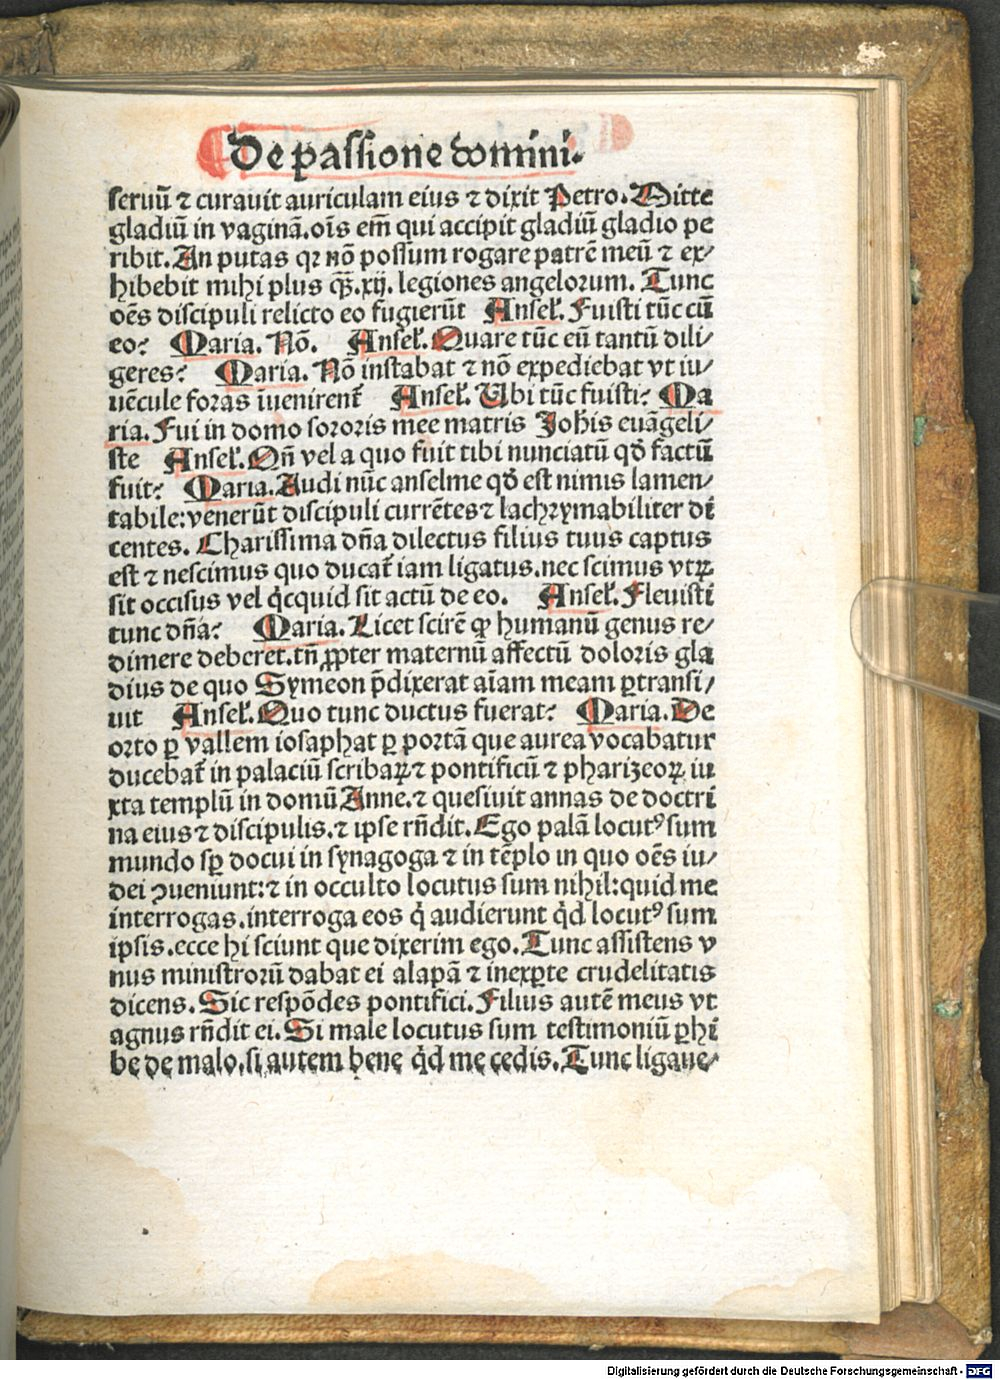 De passione domini.
seruū ⁊ curauit auriculam eius ⁊ dixit Petro. Mitte
gladiū in vaginā. oīs em̄ qui accipit gladiū gladio pe
ribit. An putas qꝛ nō possum rogare patrē meū ⁊ ex/
hibebit mihi plus qꝫ̄. xij. legiones angelorum. Tunc
oēs discipuli relicto eo fugierūt Ansel̄. Fuisti tūc cū
eo? Maria. Nō. Ansel̄. Quare tūc eū tantū dili/
geres? Maria. Nō instabat ⁊ nō expediebat vt iu/
uēcule foras īuenirent̄ Ansel̄. Ubi tūc fuisti? Ma
ria. Fui in domo sororis mee matris Johis euāgeli/
ste Ansel̄. Qn̄ vel a quo fuit tibi nunciatū qd̄ factū
fuit? Maria. Audi nūc anselme qd̄ est nimis lamen/
tabile: venerūt discipuli currētes ⁊ lachrymabiliter di
centes. Charissima dn̄a dilectus filius tuus captus
est ⁊ nescimus quo ducat̄ iam ligatus. nec scimus vtꝝ
sit occisus vel q̇cquid sit actū de eo. Ansel̄. Fleuisti
tunc dn̄a? Maria. Licet scirē ꝙ humanū genus re/
dimere deberet. tn̄ ꝓpter maternū affectū doloris gla
dius de quo Symeon p̄dixerat aīam meam ꝑtransi/
uit Ansel̄. Quo tunc ductus fuerat? Maria. De
orto ꝑ vallem iosaphat ꝑ portā que aurea vocabatur
ducebat̄ in palaciū scribaꝝ ⁊ pontificū ⁊ pharizeoꝝ iu
xta templū in domū Anne. ⁊ quesiuit annas de doctri
na eius ⁊ discipulis. ⁊ ipse rn̄dit. Ego palā locutꝰ sum
mundo sꝑ docui in synagoga ⁊ in tēplo in quo oēs iu/
dei ꝯueniunt: ⁊ in occulto locutus sum nihil: quid me
interrogas. interroga eos q̇ audierunt q̇d locutꝰ sum
ipsis. ecce hi sciunt que dixerim ego. Tunc assistens v
nus ministrorū dabat ei alapā ⁊ inexꝑte crudelitatis
dicens. Sic respōdes pontifici. Filius autē meus vt
agnus rn̄dit ei. Si male locutus sum testimoniū ꝑhi
be de malo. si autem bene q̇d me cedis. Tunc ligaue/
Digitalisierung gefördert durch die Deutsche Forschungsgemeinschaft - DFG